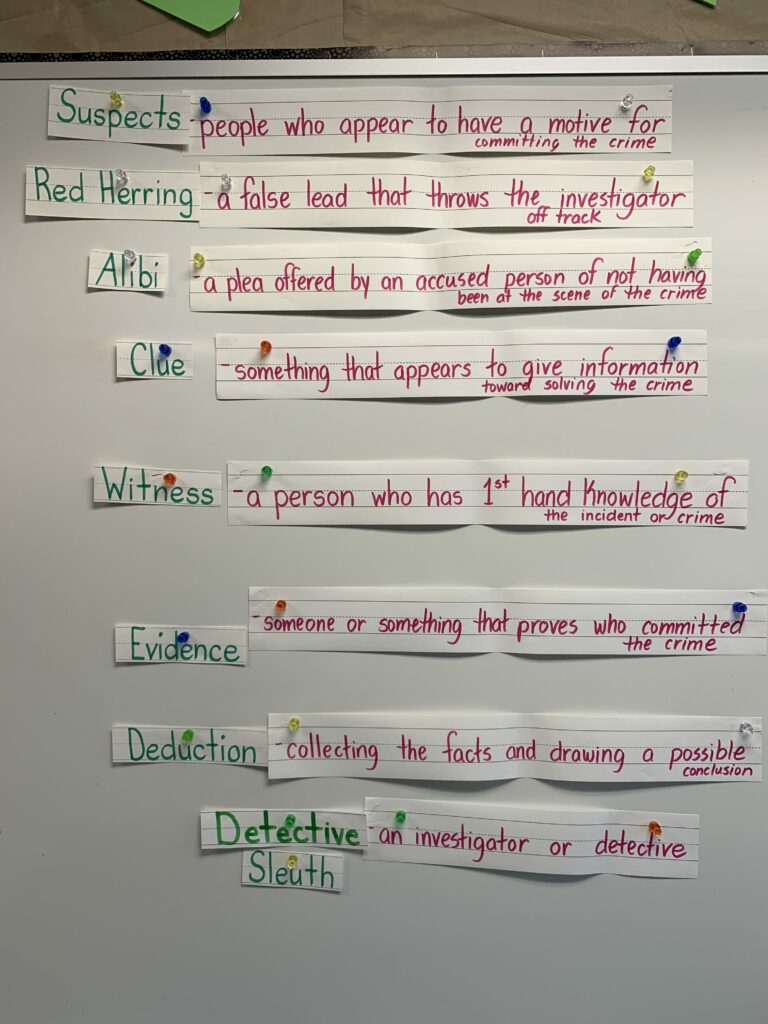 Suspects -people who appear to have a motive for
committing the crime
Red Herring -a false lead that throws the investigator
off track
Alibi -a plea offered by an accused person of not having
been at the scene of the crime
Clue -something that appears to give information
toward solving the crime
Witness -a person who has 1st hand knowledge of
the incident or crime
Evidence -someone or something that proves who committed
the crime
Deduction -collecting the facts and drawing a possible
conclusion
Detective -an investigator or detective
Sleuth